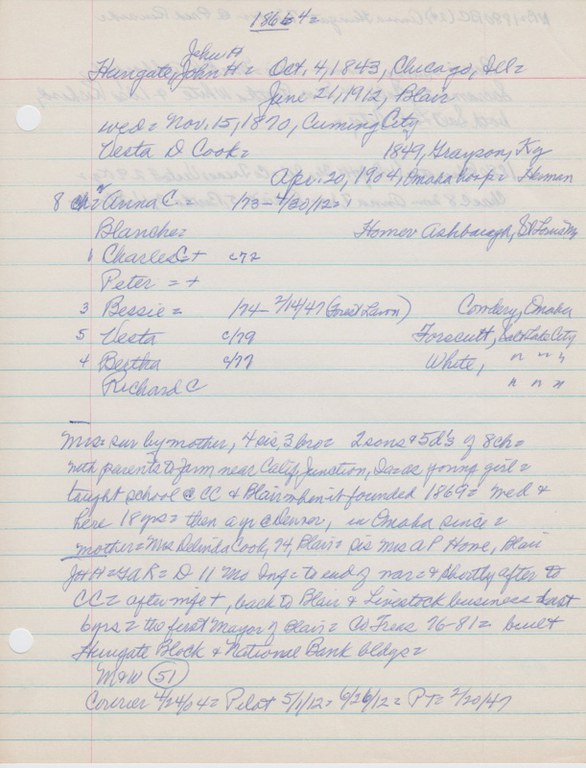 1866 4=
John A
Hungate, John H = Oct. 4, 1843, Chicago, Ill =
June 21, 1912, Blair
wed = Nov. 15, 1870, Cuming City
Vesta D Cook = 1849, Grayson, Ky
Apr. 20, 1904, Omaha hosp = Herman
8 ch = Anna C 1/73 - 4/30/12 =
Blanche = Homer Ashbaugh, St Louis Mo
1 Charles C = + c72
Peter = +
3 Bessie = 1/74 - 2/14/47 (Forest Lawn) Cowdery, Omaha
5 Vesta c/79 Forscutt, Salt Lake City
4 Bertha c/77 White, " " "
Richard C " " "
Mrs = sur by mother, 4 sis 3 bro = 2 sons & 5 d's of 8 ch =
with parents to farm near Calif Junction, Ia = as young girl =
taught school @ CC & Blair when it founded 1869 = wed &
here 18 yrs = then a yr @ Denver, in Omaha since =
mother = Mrs Delinda Cook, 74, Blair = sis Mrs A P Howe, Blair
JHH = GAR = D 11 Mo Inf = to end of war = & shortly after to
CC = after mge +, back to Blair & Livestock business last
6 yrs = the first Mayor of Blair = Co Treas 76-81 = built
Hungate Block & National Bank bldgs =
M & W (51)
Courier 4/24/04 = Pilot 5/1/12 = 6/26/12 = PT = 2/20/47